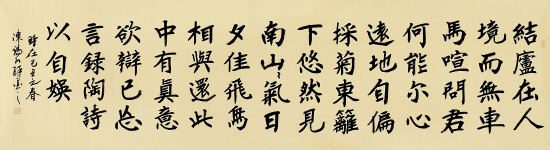 結廬在人
境而無車
馬喧問君
何能尔心
遠地自偏
採菊東籬
下悠然見
南山々氣日
夕佳飛鳥
相與還此
中有真意
欲辯已忘
言録陶詩
以自娛
時在己丑之春
陳